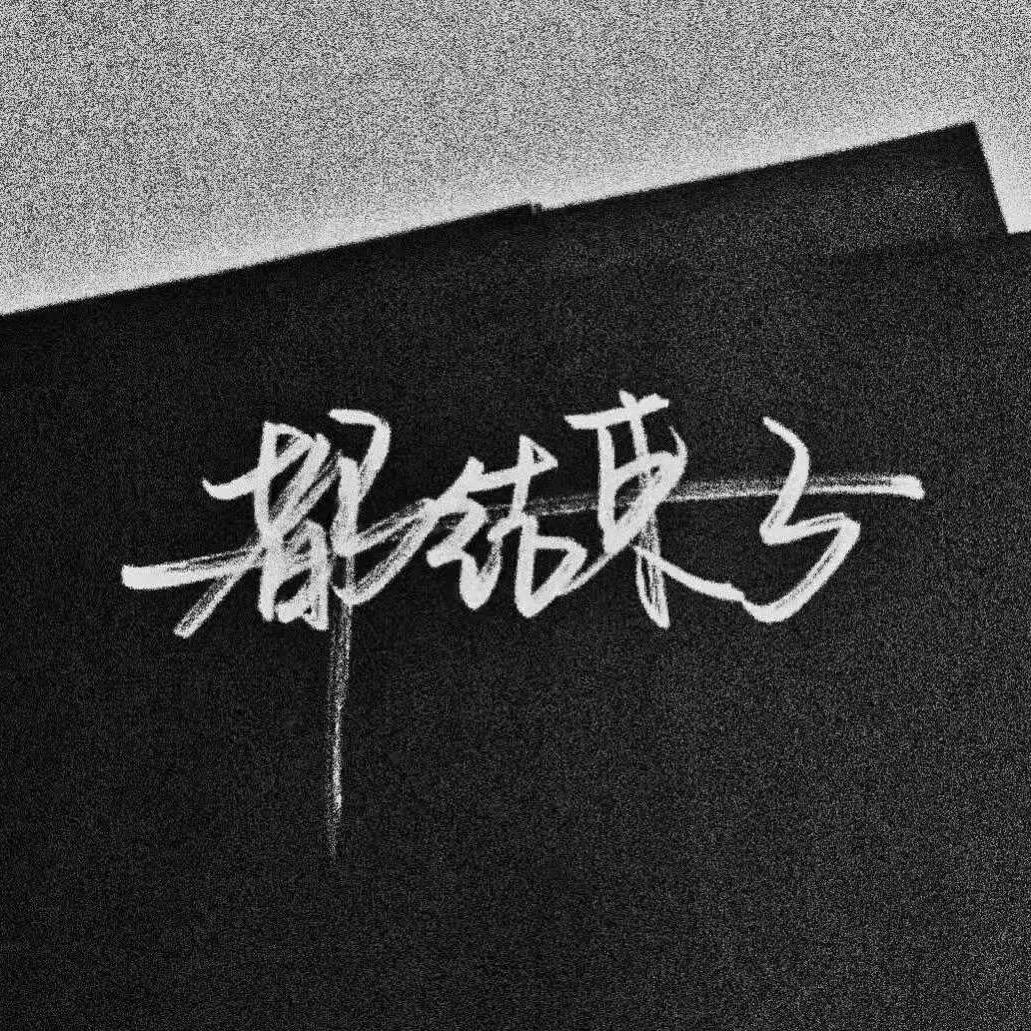 都结束了